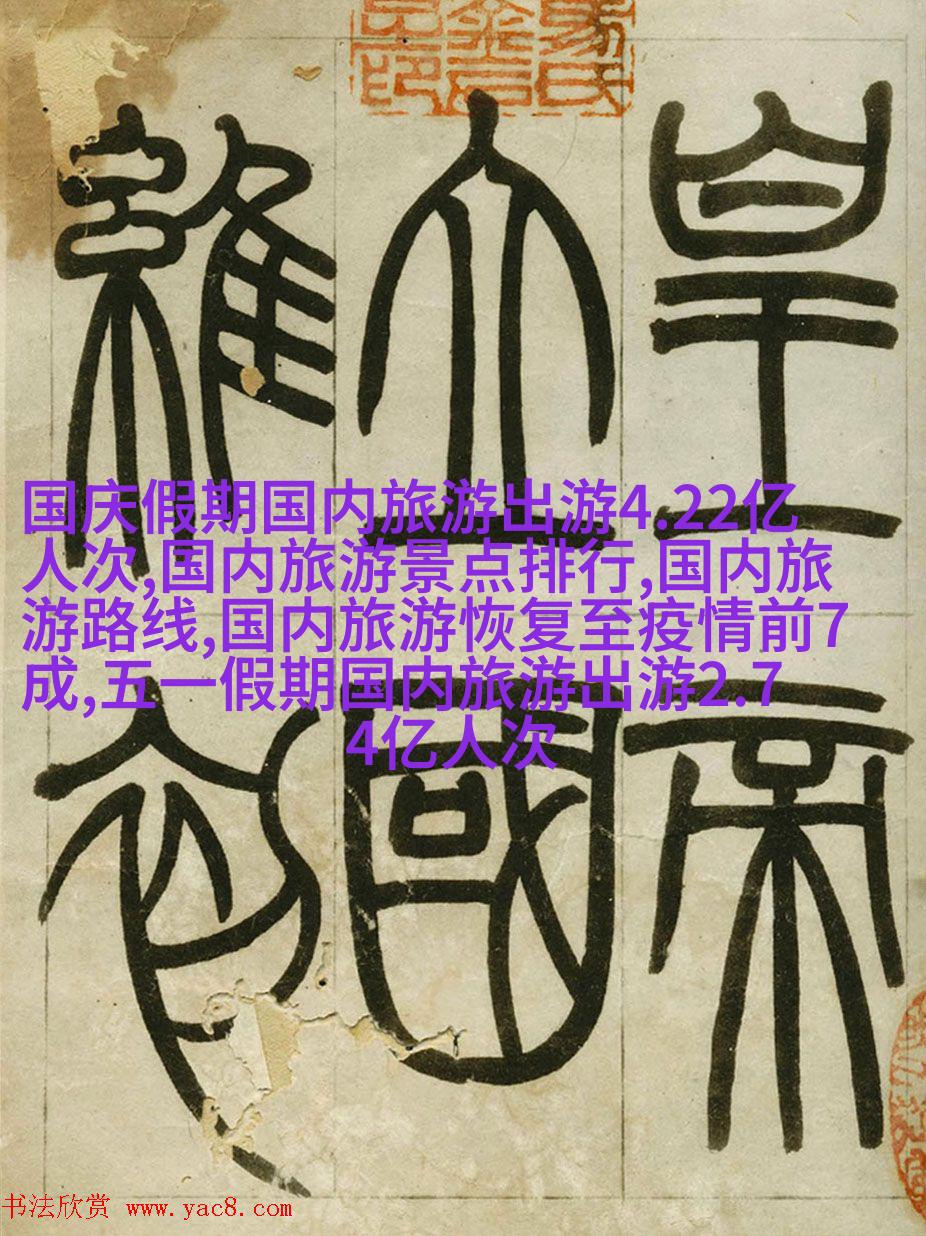 皇帝
立國
維初
国庆假期国内旅游出游4.22亿
人次,国内旅游景点排行,国内旅
游路线,国内旅游恢复至疫情前7
成,五一假期国内旅游出游2.7
4亿人次
书法欣赏 www.yac8.com